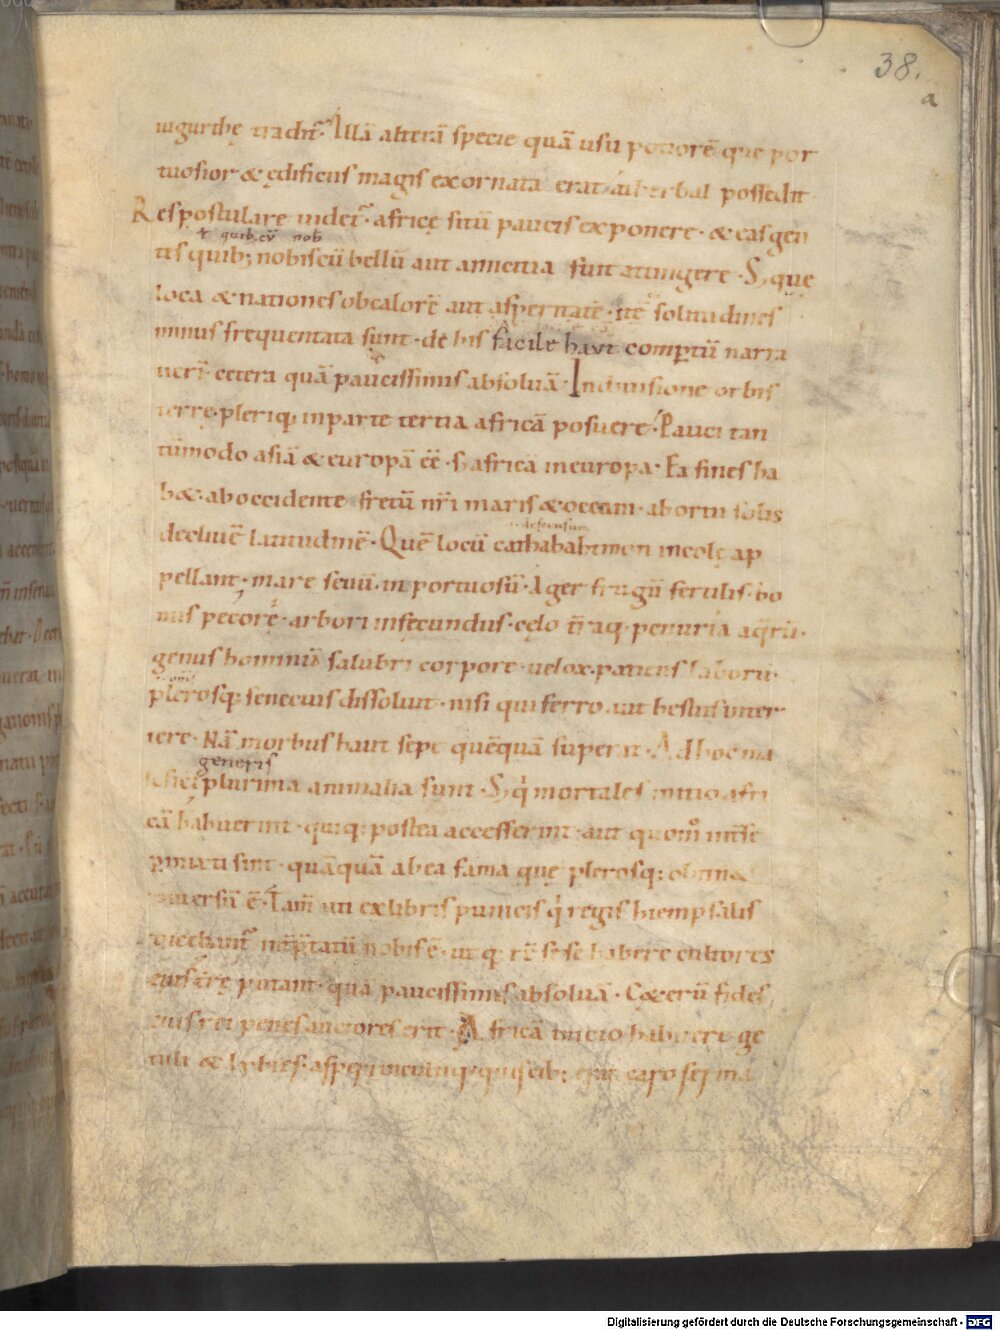 38.
a
iugurthę tradit̄. Illā alterā specie quā usu potiorē que por
tuosior & ędificiis magis exornata erat aiherbal possedit
Res postulare uidet̄. africę sitū paucis exponere. & eas gen
ł quib; cū nob
tis quib; nobiscū bellū aut amicitia sunt attingere. S; que
loca & nationes ob calorē aut asperitatē. itē solitudines
minus frequentata sunt. de his facile haut compertū narra
uerī. cetera quā paucissimis absoluā. In diuisione orbis
terrę. pleriq; in parte tertia africā posuere. Pauci tan
tūmodo asiā & europā ēē. s; africā in europa. Ea fines ha
b&. ab occidente fretū nr̄i maris & oceani. ab ortu solis
decliuē latitudinē. Quē locū cathabahtmon incolę ap
pellant. mare seuū. inportuosū. Ager frugū fertilis. bo
nus pecorę. arbori infecundus. cęlo t̄raq. penuria aq̄rū.
genus hominū salubri corpore. uelox. patiens laborū.
plerosq; senectus dissoluit. nisi qui ferro aut bestiis inter
iere. Nā morbus haut sepe quēquā superat. Ad hoc ma
generis
lefici plurima animalia sunt. S; q̄ mortales initio afri
cā habuerint. quiq; postea accesserint. aut quom̄ int̄ se
p̄mixti sint. quāquā ab ea fama quę plerosq; obtin&
diuersū ē. Tam̄ uti ex libris punicis q̄ regis hiempsalis
dicebant̄ int̄p̄tatū nobis ē. ut q; rē sese habere cultores
eius t̄rę putant. quā paucissimis absoluā. C&erū fides
eius rei penes auctores erit. Africā initio habuere ge
tuli & lybies. asperi incultiq; quis cib; erat caro ferina
Digitalisierung gefördert durch die Deutsche Forschungsgemeinschaft - DFG